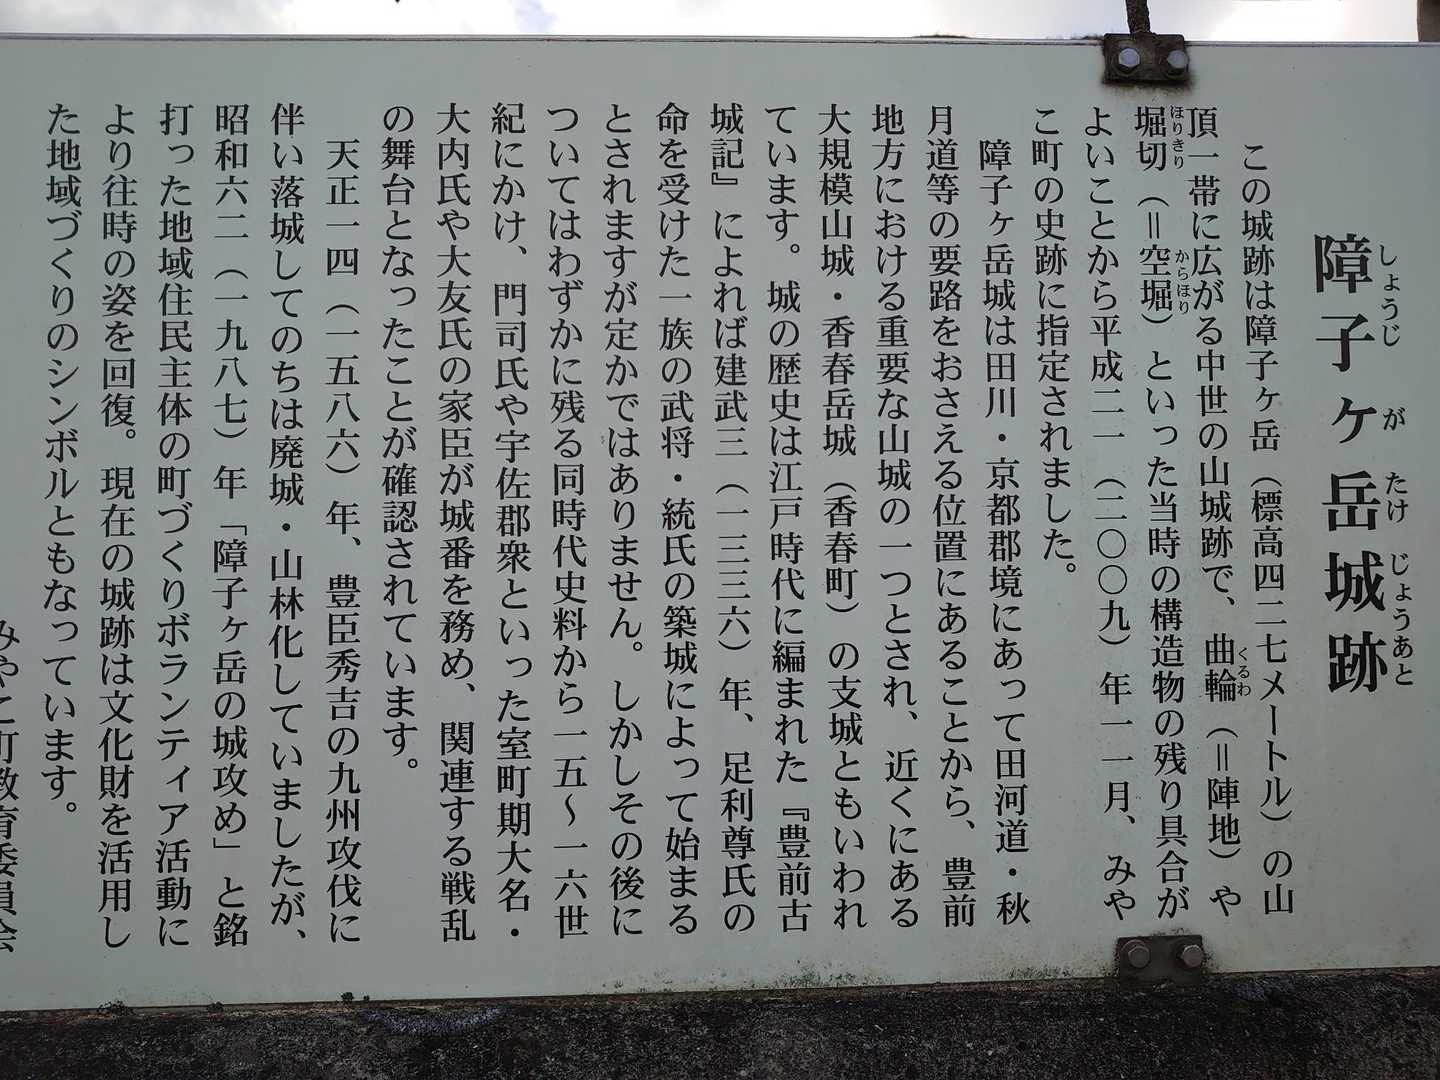 障子ヶ岳城跡
しょうじ が たけ じょうあと
この城跡は障子ヶ岳（標高四二七メートル）の山
頂一帯に広がる中世の山城跡で、曲輪（＝陣地）や
くるわ
堀切（＝空堀）といった当時の構造物の残り具合が
ほりきり からほり
よいことから平成二一（二〇〇九）年一一月、みや
こ町の史跡に指定されました。
障子ヶ岳城は田川・京都郡境にあって田河道・秋
月道等の要路をおさえる位置にあることから、豊前
地方における重要な山城の一つとされ、近くにある
大規模山城・香春岳城（香春町）の支城ともいわれ
ています。城の歴史は江戸時代に編まれた『豊前古
城記』によれば建武三（一三三六）年、足利尊氏の
命を受けた一族の武将・統氏の築城によって始まる
とされますが定かではありません。しかしその後に
ついてはわずかに残る同時代史料から一五～一六世
紀にかけ、門司氏や宇佐郡衆といった室町期大名・
大内氏や大友氏の家臣が城番を務め、関連する戦乱
の舞台となったことが確認されています。
天正一四（一五八六）年、豊臣秀吉の九州攻伐に
伴い落城してのちは廃城・山林化していましたが、
昭和六二（一九八七）年「障子ヶ岳の城攻め」と銘
打った地域住民主体の町づくりボランティア活動に
より往時の姿を回復。現在の城跡は文化財を活用し
た地域づくりのシンボルともなっています。
みやこ町教育委員会